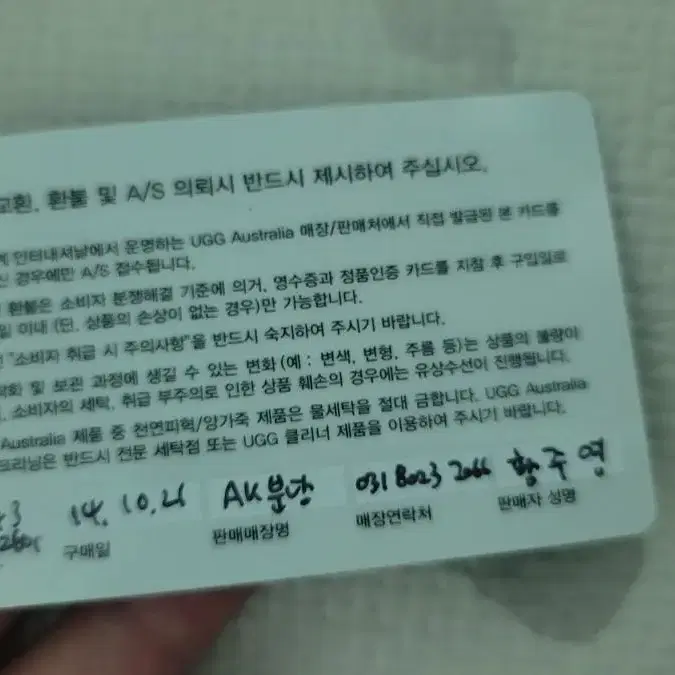 교환, 환불 및 A/S 의뢰시 반드시 제시하여 주십시오.
인터내셔날에서 운영하는 UGG Australia 매장/판매처에서 직접 발급된 본 카드를
신 경우에만 A/S 접수됩니다.
환불은 소비자 분쟁해결 기준에 의거, 영수증과 정품인증 카드를 지참 후 구입일로
일 이내 (단, 상품의 손상이 없는 경우)만 가능합니다.
"소비자 취급 시 주의사항"을 반드시 숙지하여 주시기 바랍니다.
및 보관 과정에 생길 수 있는 변화(예 : 변색, 변형, 주름 등)는 상품의 불량이
소비자의 세탁, 취급 부주의로 인한 상품 훼손의 경우에는 유상수선이 진행됩니다.
Australia 제품 중 천연피혁/양가죽 제품은 물세탁을 절대 금합니다. UGG Australia
크리닝은 반드시 전문 세탁점 또는 UGG 클리너 제품을 이용하여 주시기 바랍니다.
14.10.21 AK분당 031 8023 2066 황주영
구매일 판매매장명 매장연락처 판매자 성명